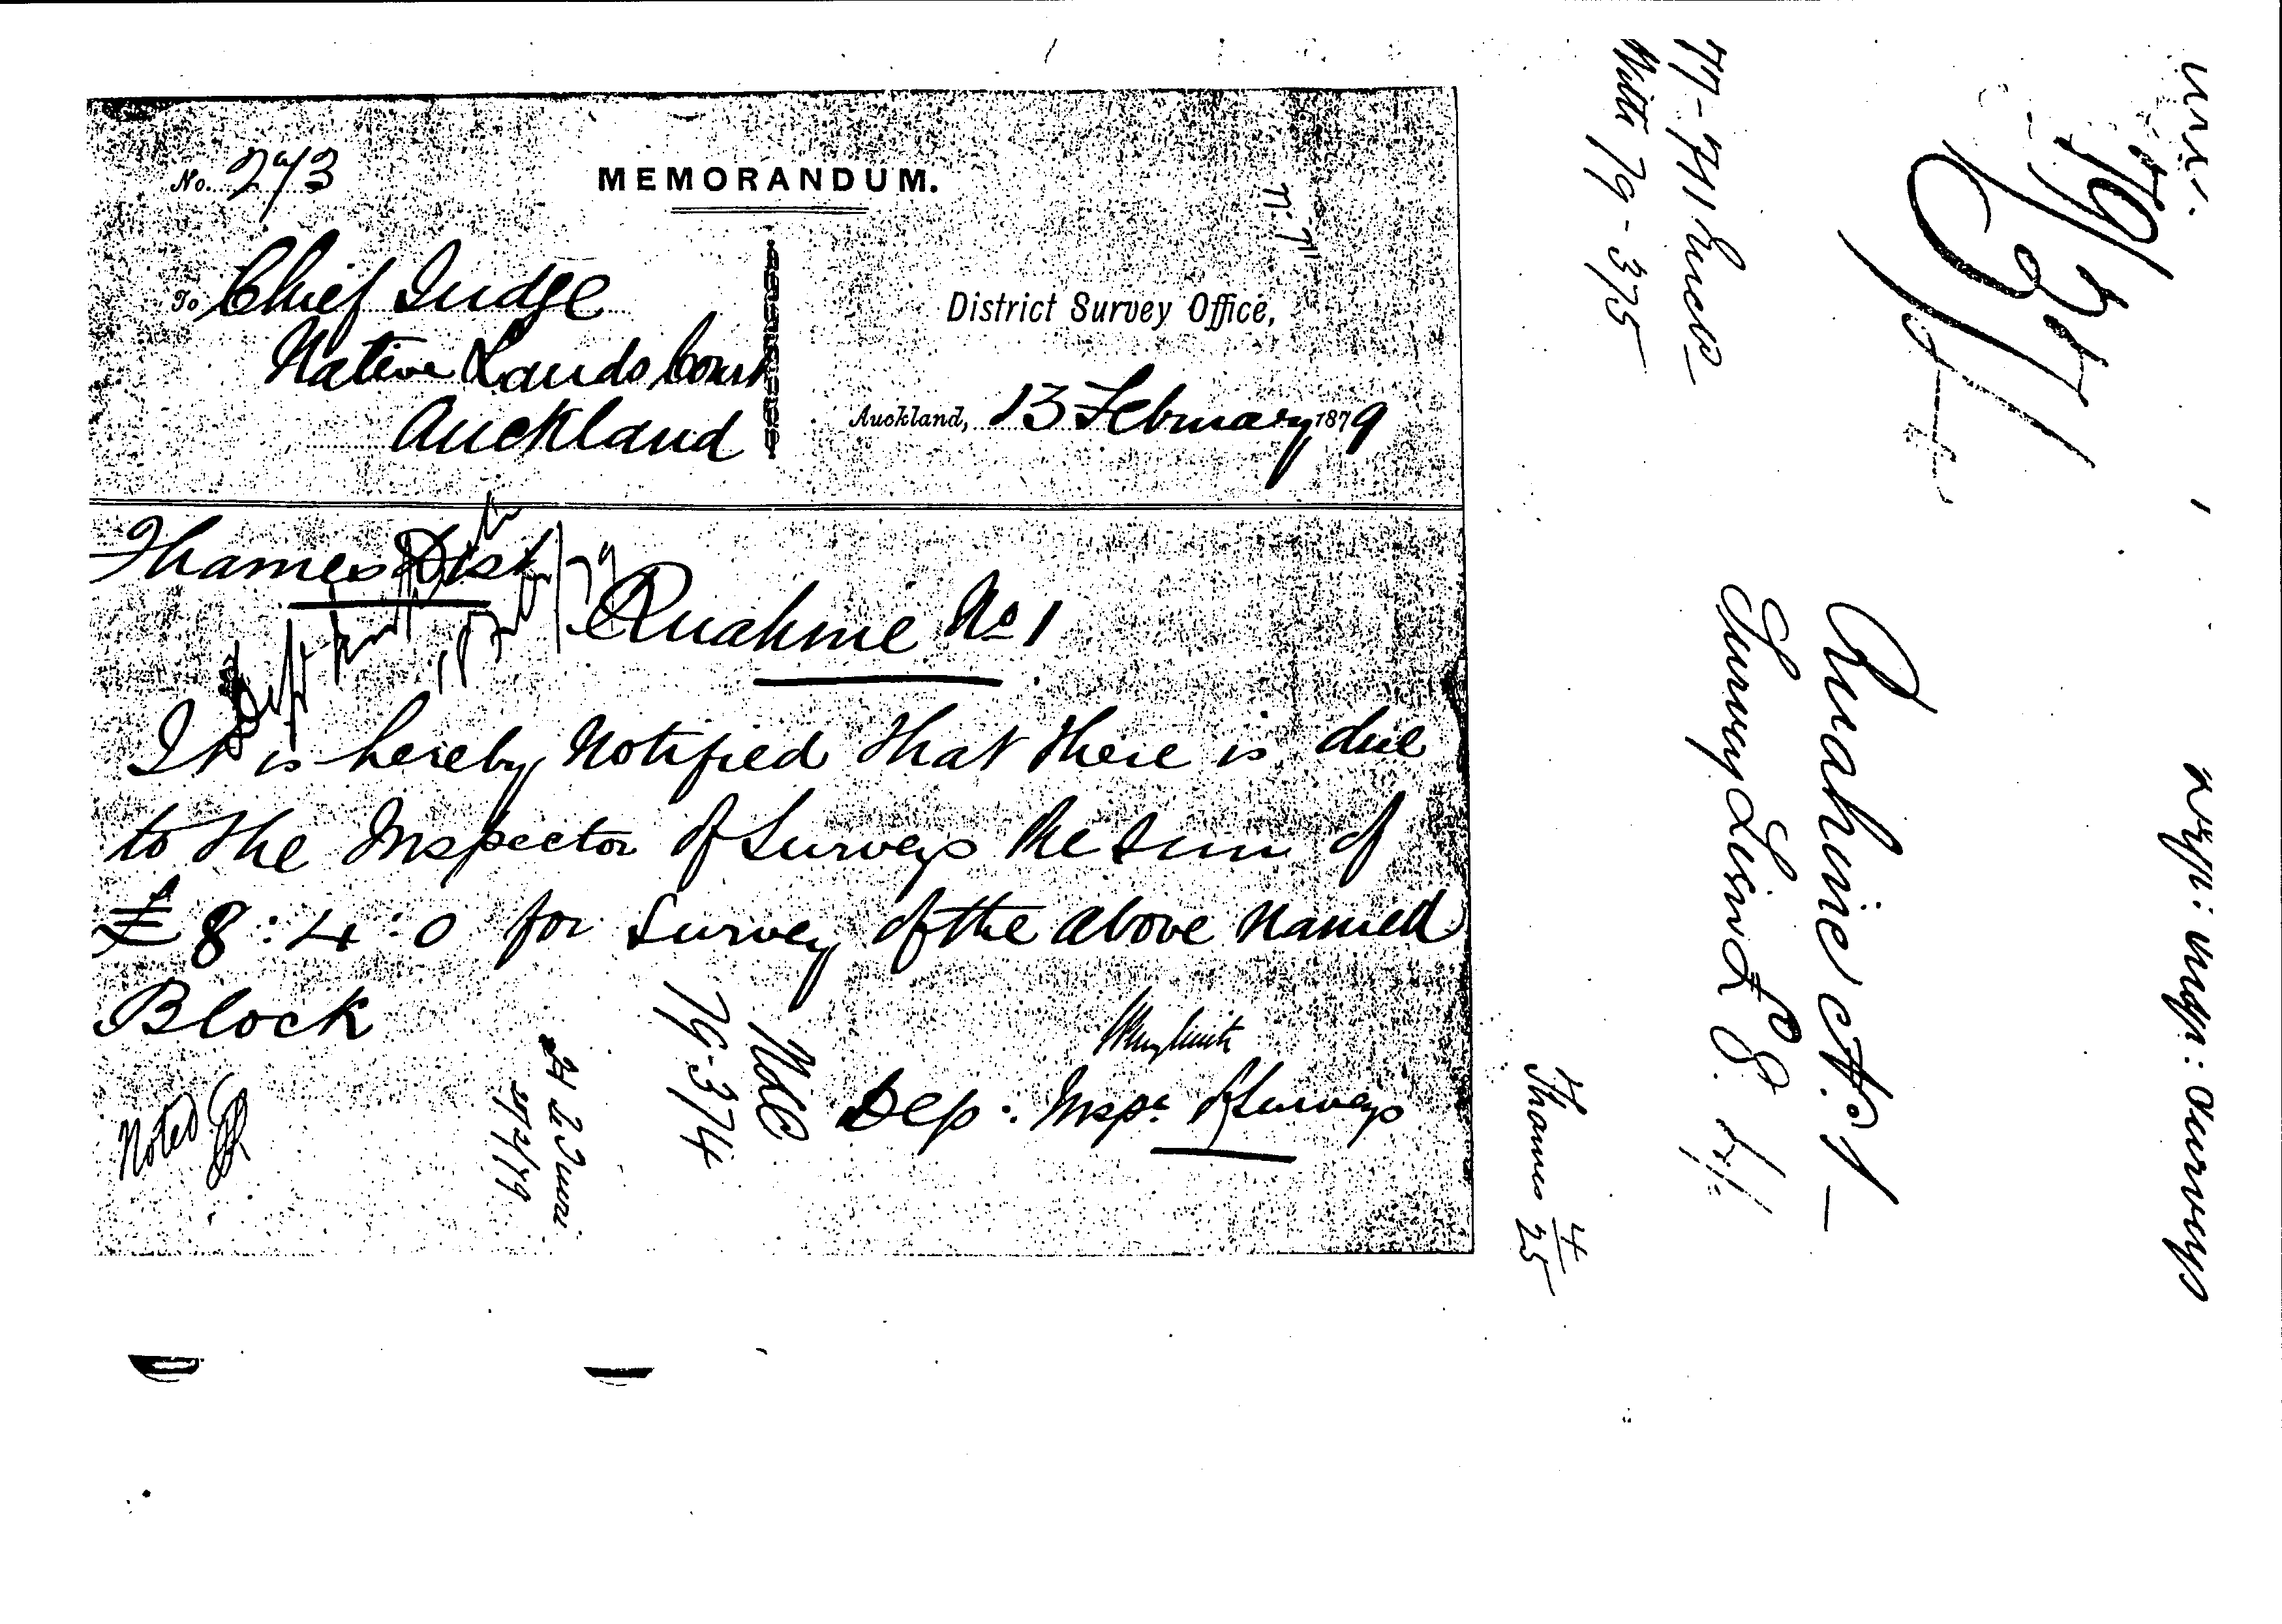 No. 243
MEMORANDUM.
To Chief Judge
Native Lands Court
Auckland
District Survey Office,
Auckland, 13 February 1879
Thames Dist
Ruahine No 1
It is hereby Notified that there is due
to the Inspector of Surveys the sum of
£8:4:0 for Survey of the above named
Block
Dep: Inspr of Surveys
Noted
NLC
79-374
27/2/79
79-375
Thames 4/25
Ruahine No 1
Survey Lien £8. 4/.